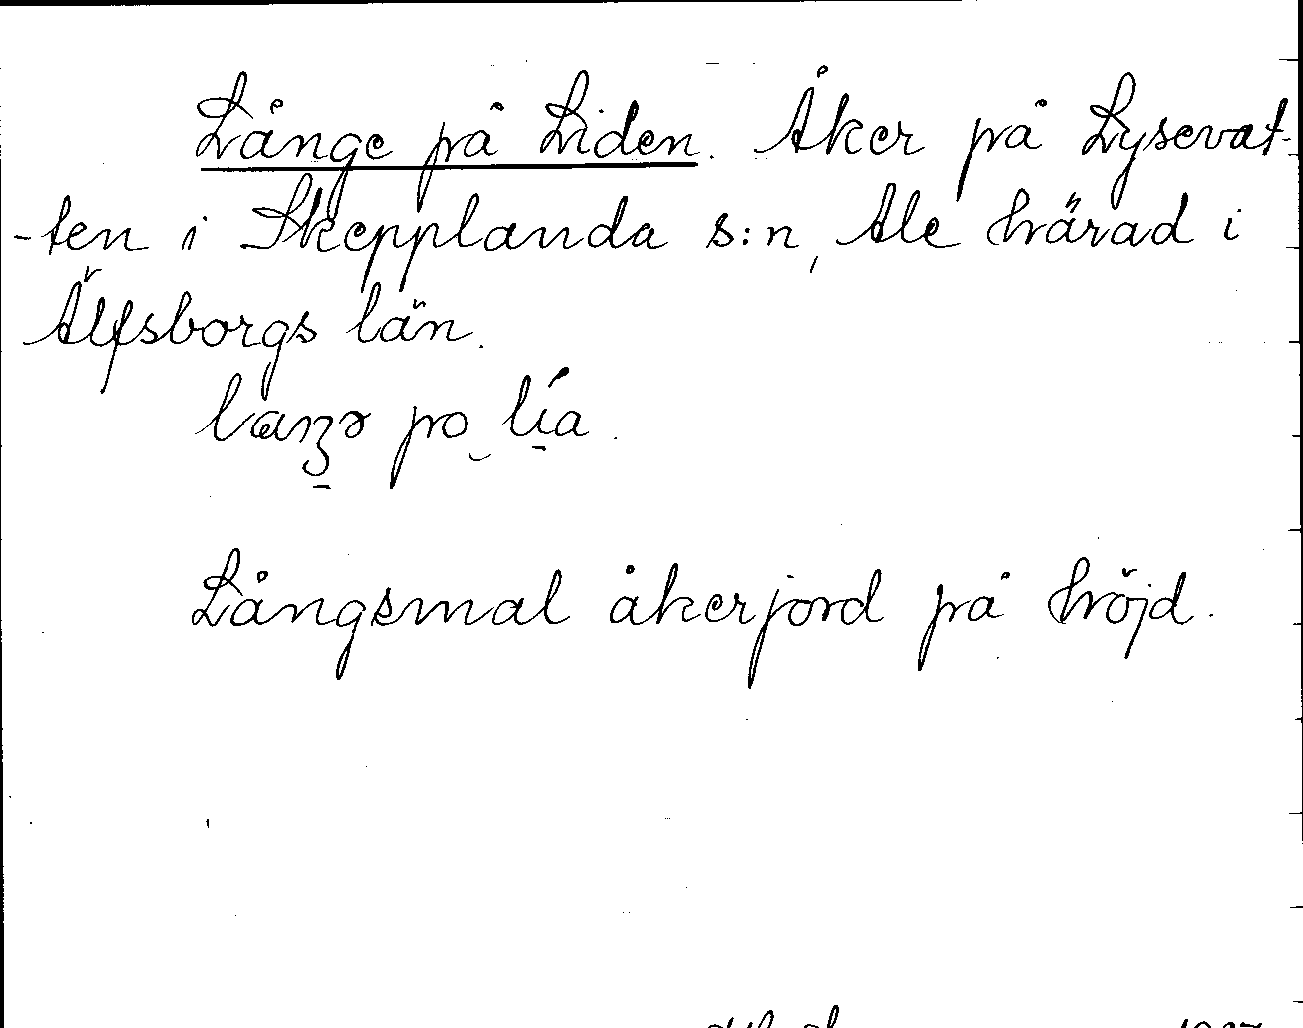 Långe på Liden. Åker på Lysevat-
-ten i Skepplanda s:n, Ale härad i
Älfsborgs län.
Långsmal åkerjord på höjd.